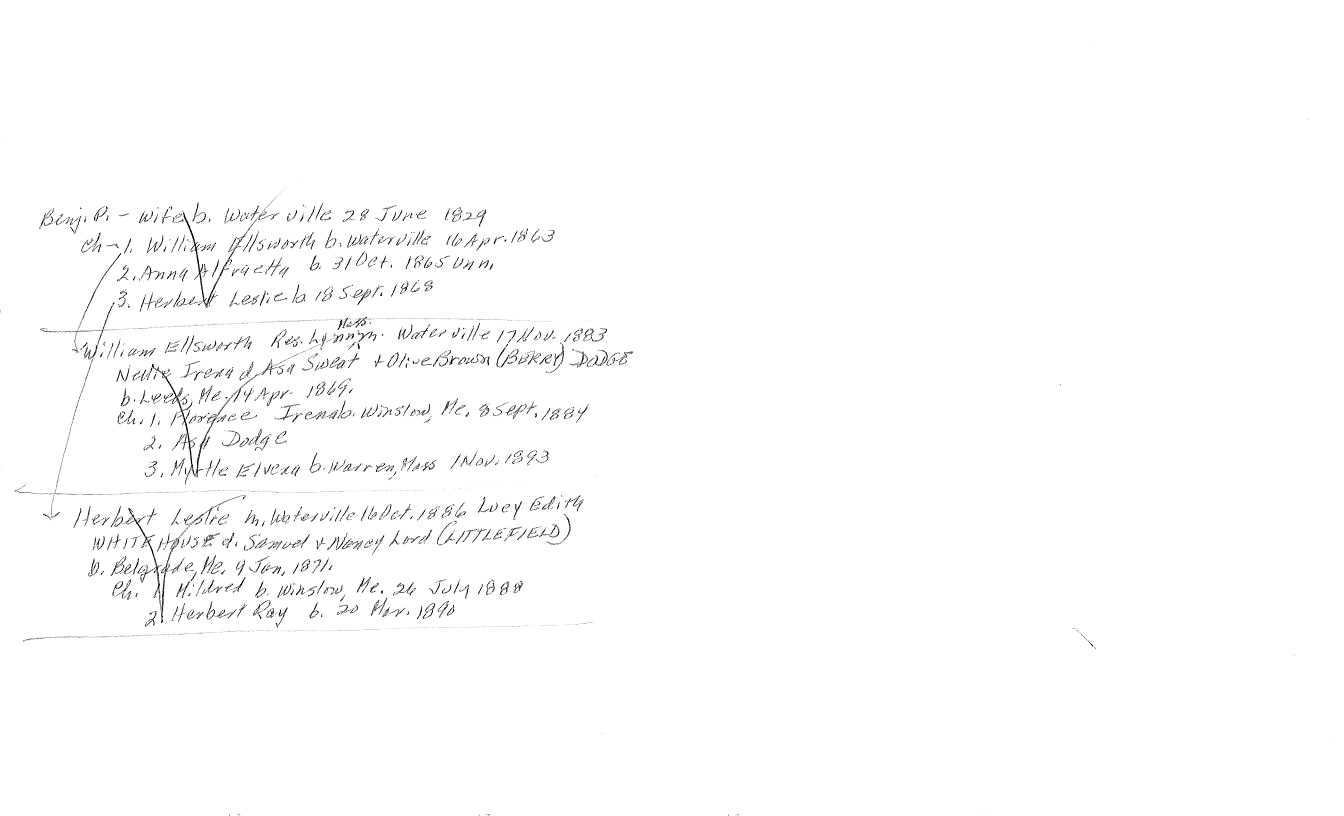 Benj. P. - Wife b. Waterville 28 June 1829
Ch - 1. William Ellsworth b. Waterville 16 Apr. 1863
2. Anna Alfraetta b. 31 Oct. 1865 Unn.
3. Herbert Leslie b 18 Sept. 1868
Mass.
William Ellsworth Res. Lynn m. Waterville 17 Nov. 1883
Nellie Irena d. Asa Sweat + Olive Brown (BERRY) DODGE
b. Leeds, Me. 14 Apr. 1869.
Ch. 1. Florence Irena b. Winslow, Me. 8 Sept. 1884
2. Asa Dodge
3. Myrtle Elvena b. Warren, Mass 1 Nov. 1893
Herbert Leslie m. Waterville 16 Oct. 1886 Lucy Edith
WHITEHOUSE d. Samuel + Nancy Lord (LITTLEFIELD)
b. Belgrade, Me. 9 Jan. 1871.
Ch. 1. Mildred b. Winslow, Me. 26 July 1888
2. Herbert Ray b. 20 Mar. 1890